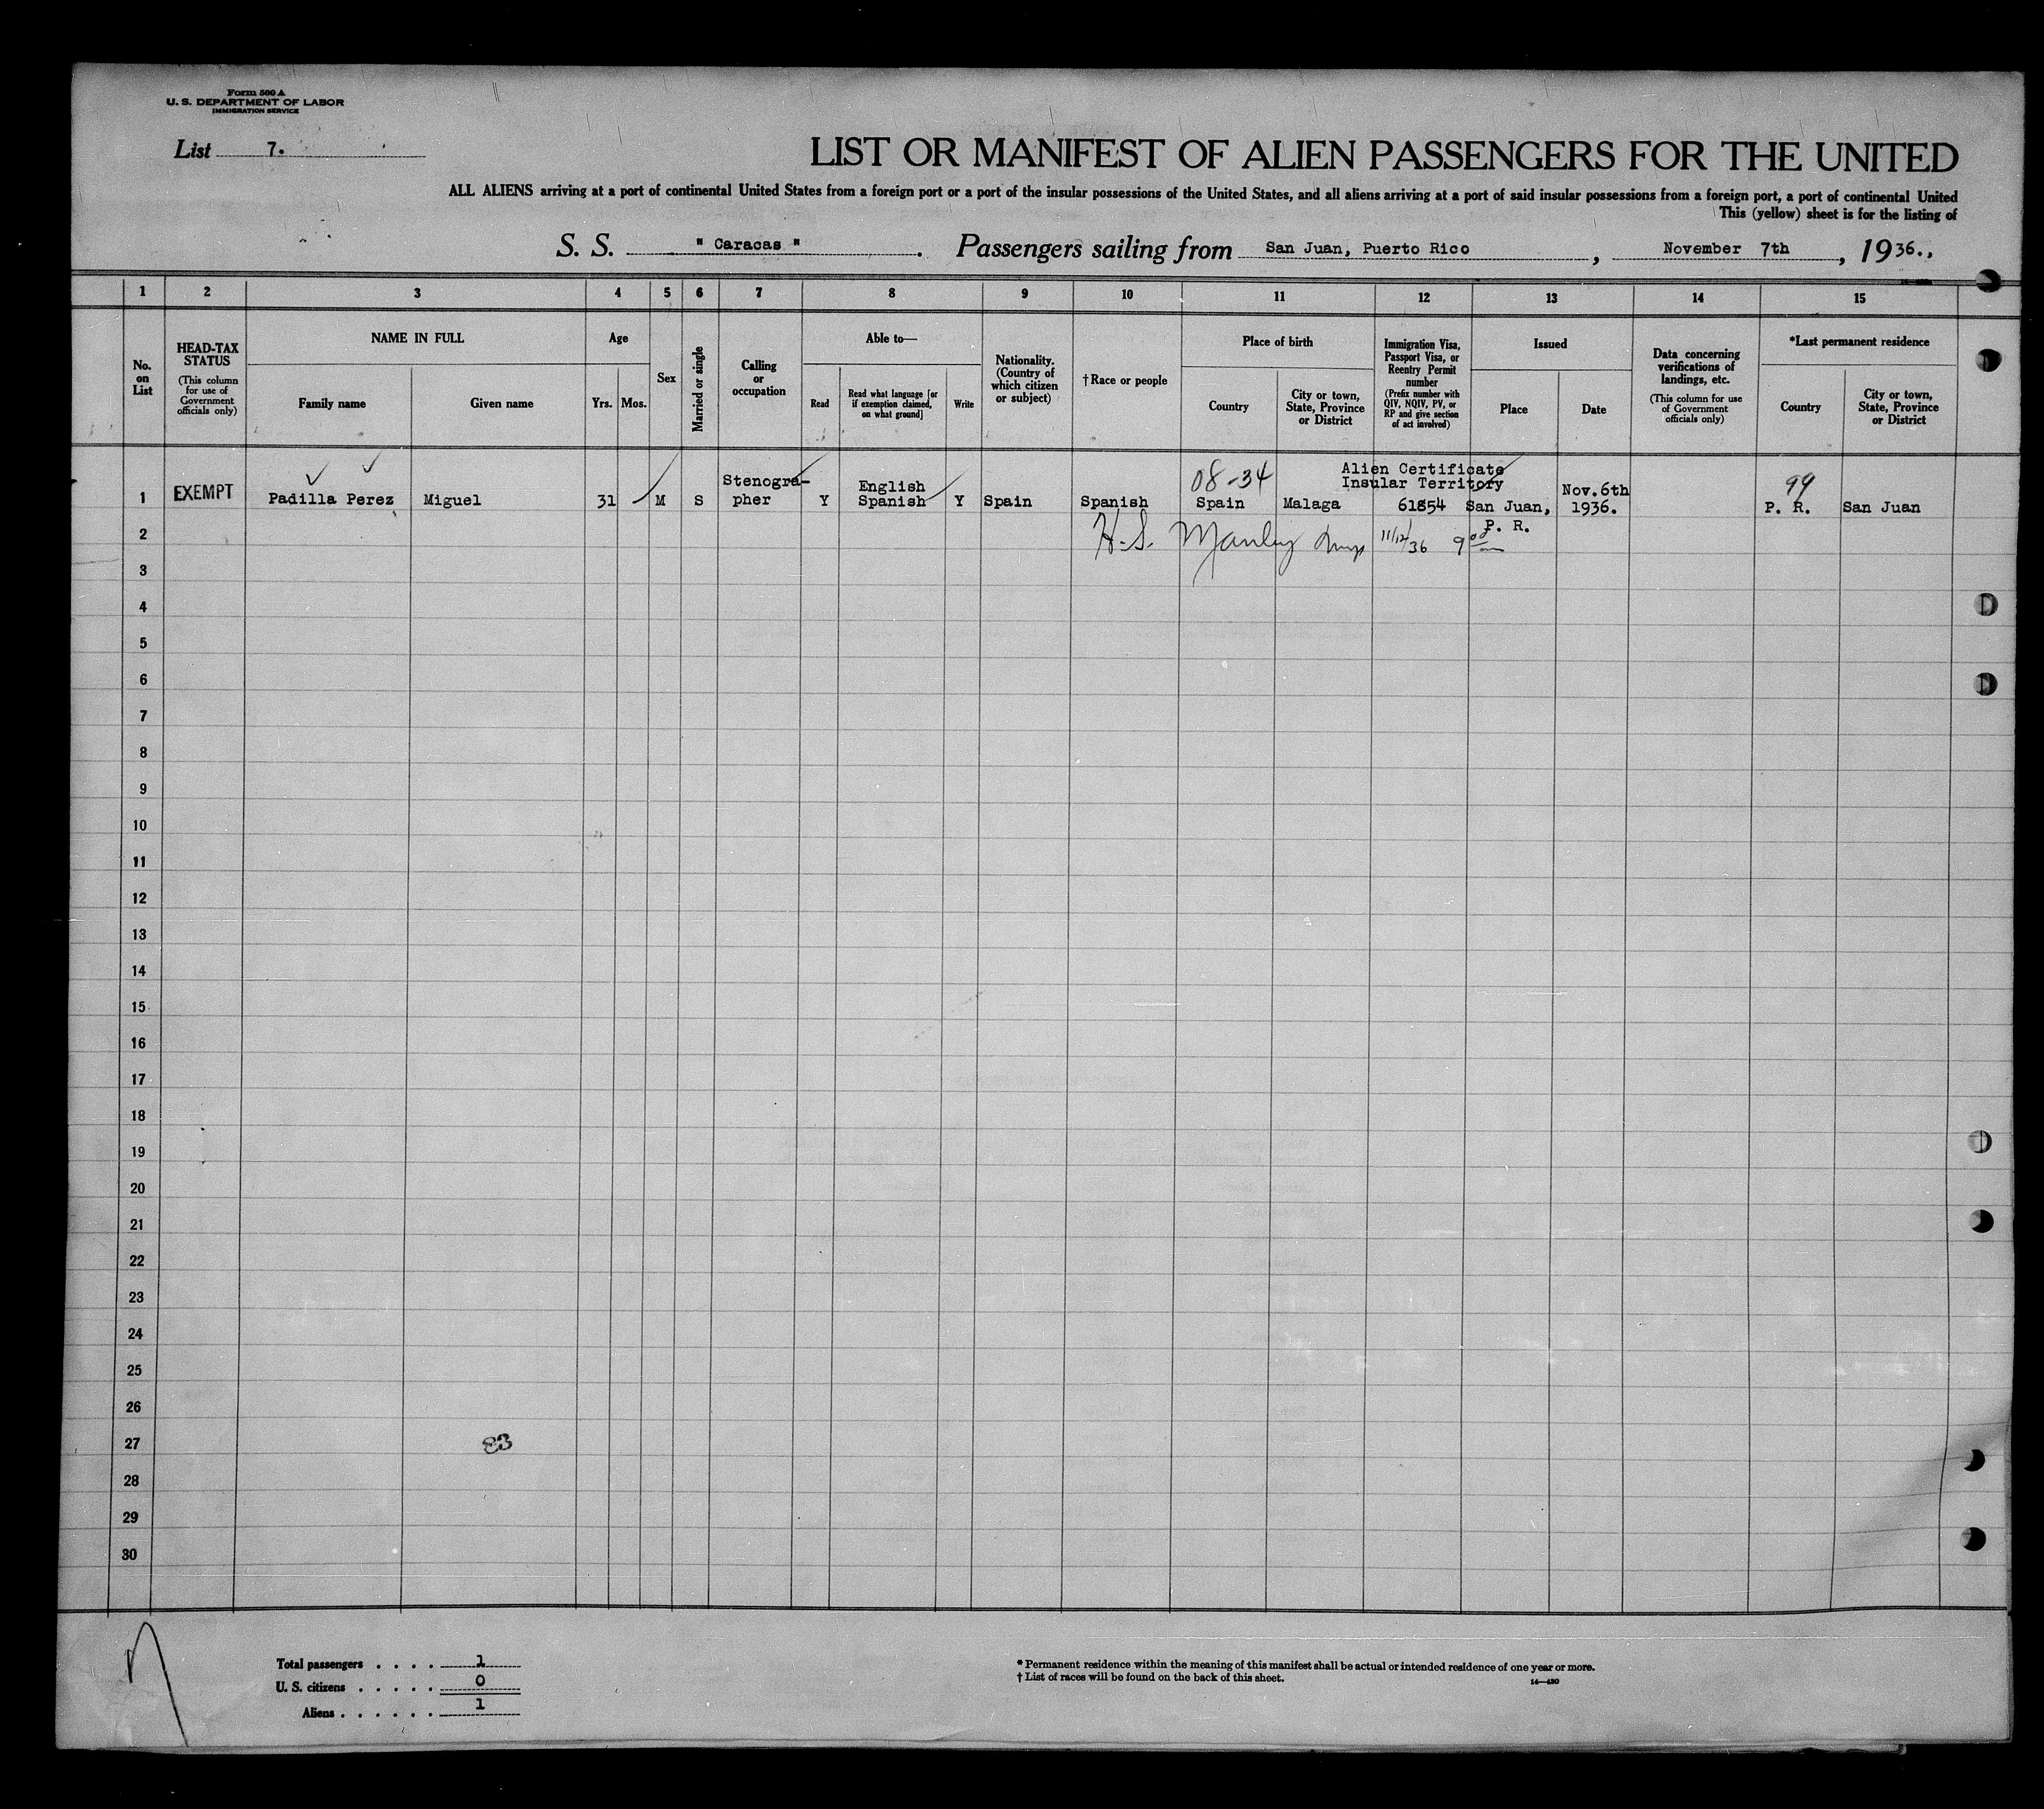 Form 500 A
U. S. DEPARTMENT OF LABOR
IMMIGRATION SERVICE
List 7.
LIST OR MANIFEST OF ALIEN PASSENGERS FOR THE UNITED
ALL ALIENS arriving at a port of continental United States from a foreign port or a port of the insular possessions of the United States, and all aliens arriving at a port of said insular possessions from a foreign port, a port of continental United
This (yellow) sheet is for the listing of
S. S. " Caracas ". Passengers sailing from San Juan, Puerto Rico, November 7th, 1936.,
1 2 3 4 5 6 7 8 9 10 11 12 13 14 15
No. on List
HEAD-TAX STATUS
(This column for use of Government officials only)
NAME IN FULL
Family name
Given name
Age
Yrs.
Mos.
Sex
Married or single
Calling or occupation
Able to—
Read
Read what language [or if exemption claimed, on what ground]
Write
Nationality. (Country of which citizen or subject)
†Race or people
Place of birth
Country
City or town, State, Province or District
Immigration Visa, Passport Visa, or Reentry Permit number
(Prefix number with QIV, NQIV, PV, or RP and give section of act involved)
Issued
Place
Date
Data concerning verifications of landings, etc.
(This column for use of Government officials only)
*Last permanent residence
Country
City or town, State, Province or District
08-34 Alien Certificate 99
Stenogra- English Insular Territory Nov.6th
1 EXEMPT Padilla Perez Miguel 31 M S pher Y Spanish Y Spain Spanish Spain Malaga 61854 San Juan, 1936. P. R. San Juan
P. R.
2 H. S. Manley 11/12/36 9 00
3
4
5
6
7
8
9
10
11
12
13
14
15
16
17
18
19
20
21
22
23
24
25
26
27
28
29
30
Total passengers . . . . 1
U. S. citizens . . . . . 0
Aliens . . . . . . 1
* Permanent residence within the meaning of this manifest shall be actual or intended residence of one year or more.
† List of races will be found on the back of this sheet.
14—430